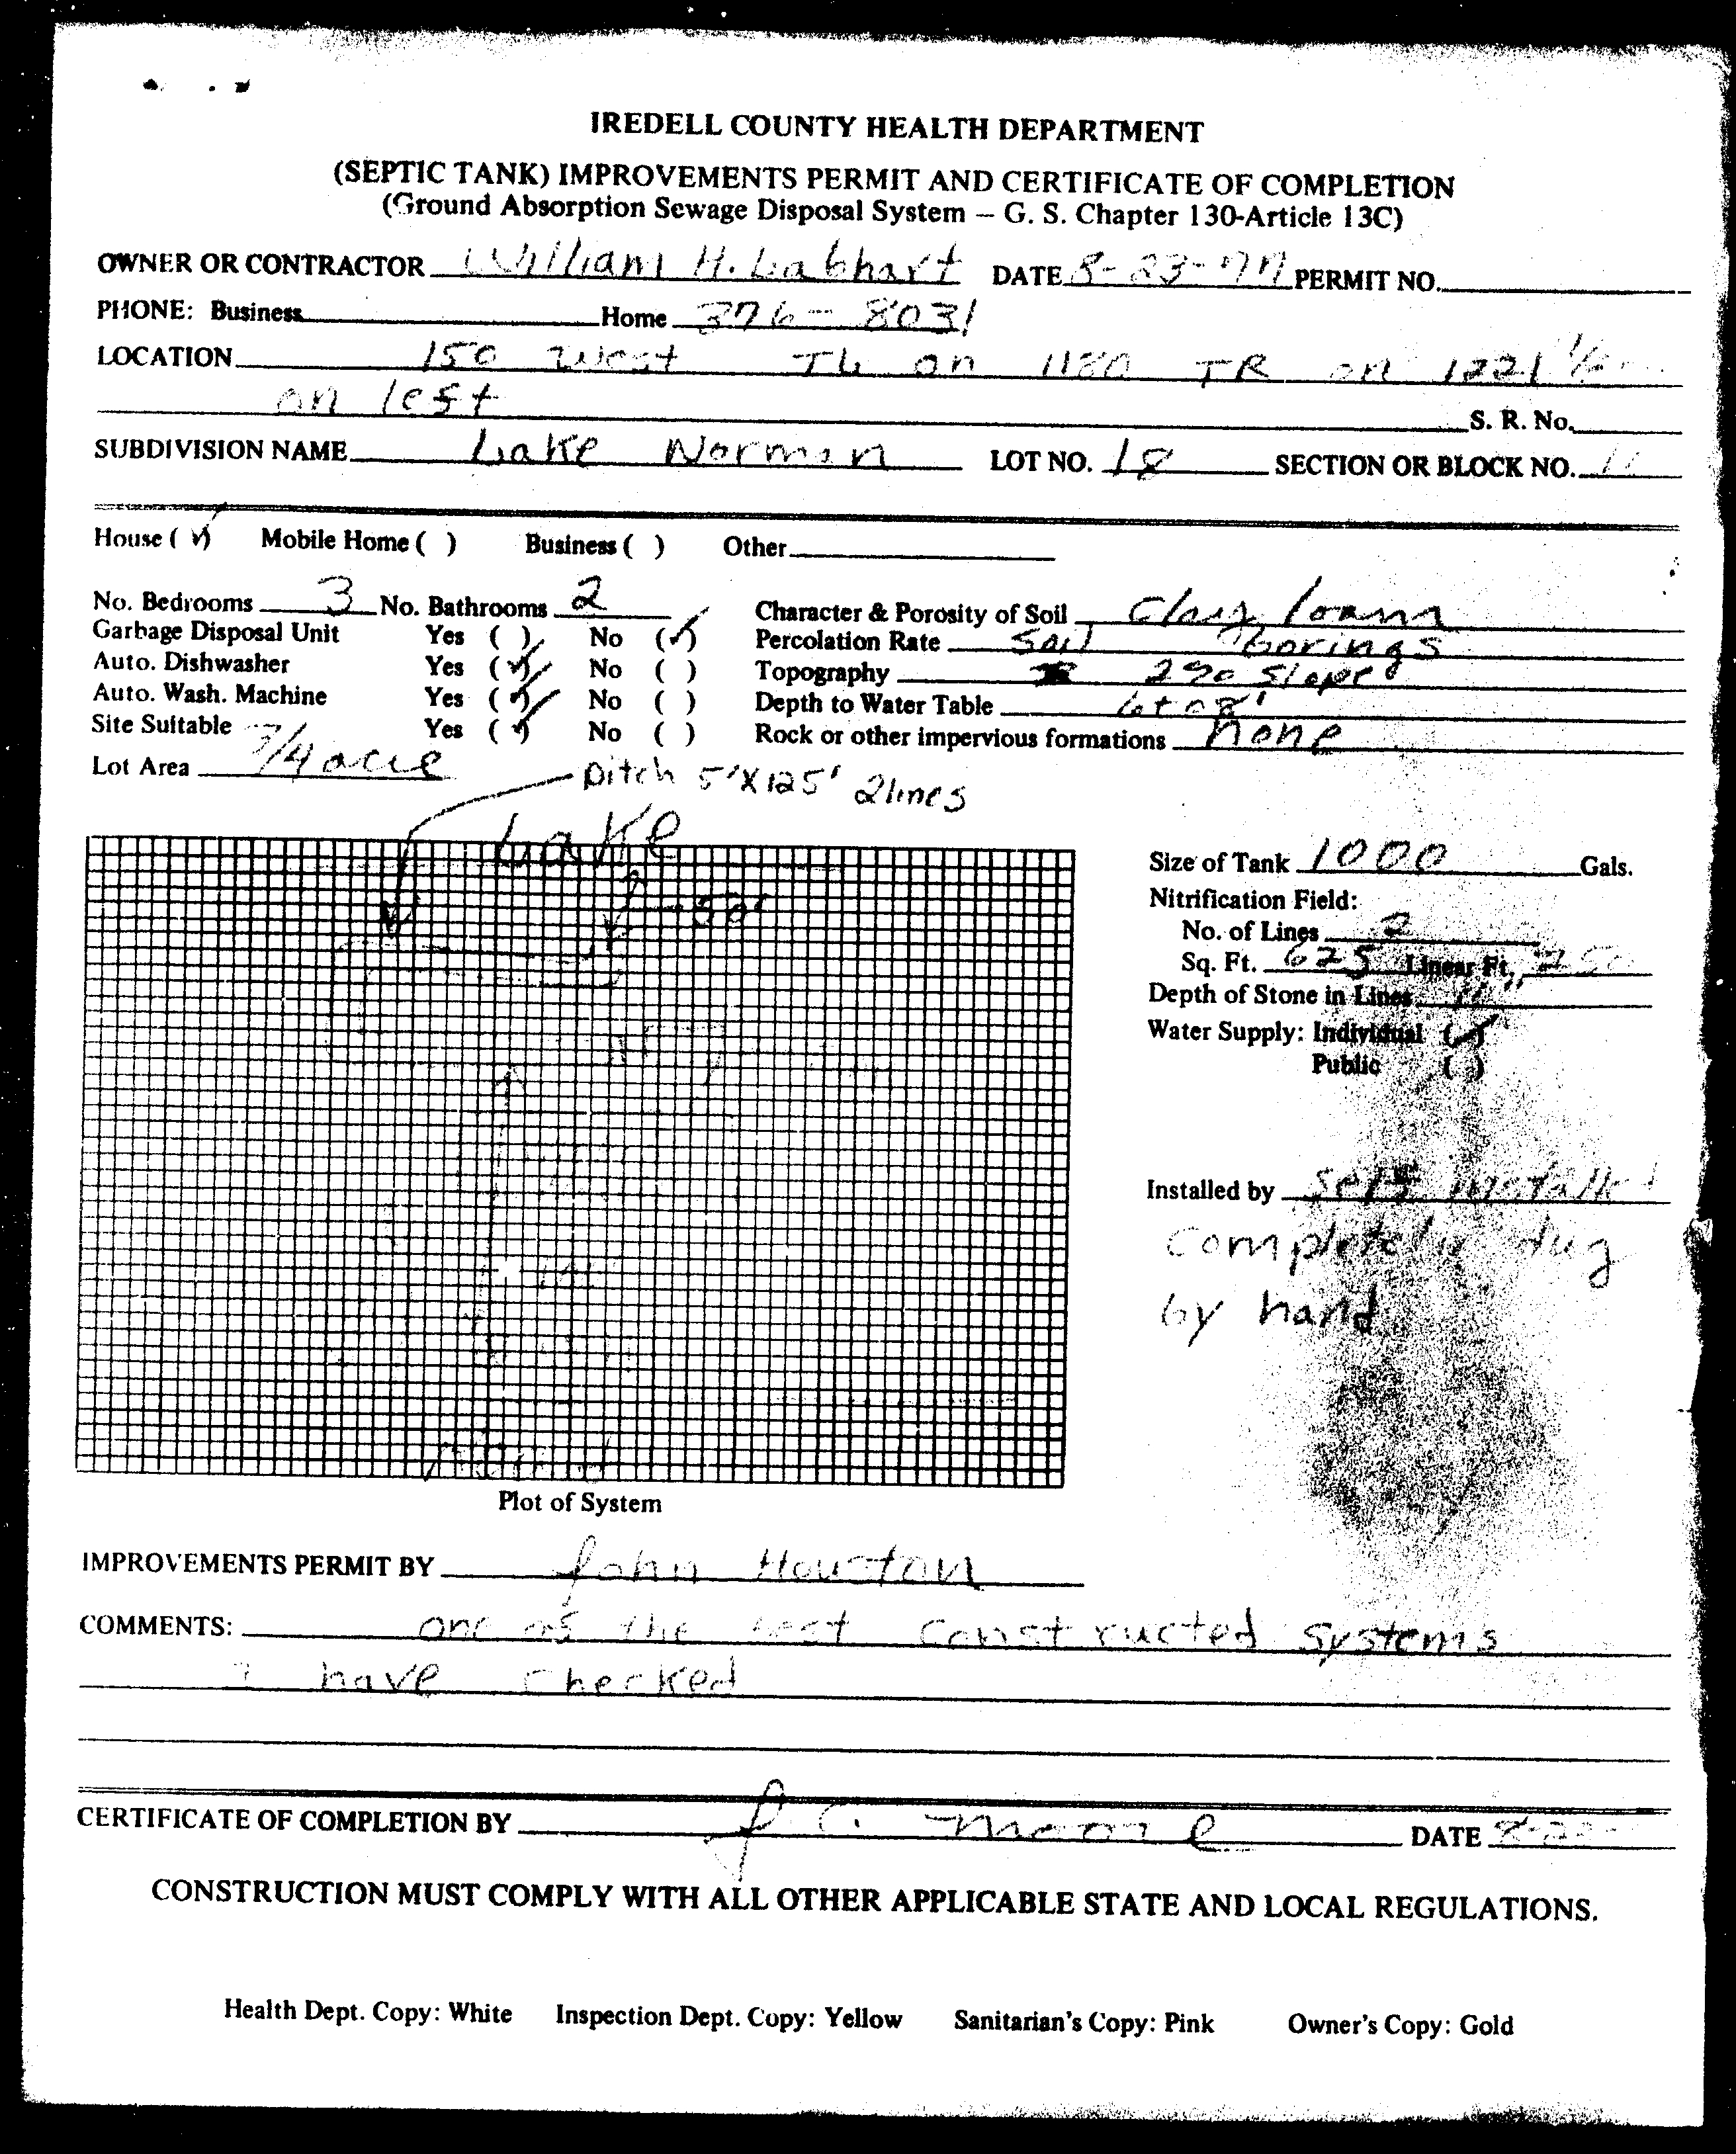 IREDELL COUNTY HEALTH DEPARTMENT
(SEPTIC TANK) IMPROVEMENTS PERMIT AND CERTIFICATE OF COMPLETION
(Ground Absorption Sewage Disposal System – G. S. Chapter 130-Article 13C)
OWNER OR CONTRACTOR William H. Labhart DATE 8-23-77 PERMIT NO.
PHONE: Business Home 376-8031
LOCATION 150 West TL on 1180 TR on 1221 1/2
on left
S. R. No.
SUBDIVISION NAME Lake Norman LOT NO. 18 SECTION OR BLOCK NO. 11
House (✓) Mobile Home ( ) Business ( ) Other
No. Bedrooms 3 No. Bathrooms 2 Character & Porosity of Soil Clay loam
Garbage Disposal Unit Yes ( ) No (✓) Percolation Rate Soil borings
Auto. Dishwasher Yes (✓) No ( ) Topography 2% slope
Auto. Wash. Machine Yes (✓) No ( ) Depth to Water Table
Site Suitable Yes (✓) No ( ) Rock or other impervious formations none
Lot Area 3/4 acre
Ditch 5'X125' 2lines
Lake
50'
Size of Tank 1000 Gals.
Nitrification Field:
No. of Lines 2
Sq. Ft. 625 Linear Ft. 250
Depth of Stone in Lines
Water Supply: Individual (✓)
Public ( )
Installed by Self installed
Completely dug
by hand
Plot of System
IMPROVEMENTS PERMIT BY John Houston
COMMENTS: one of the best constructed systems
I have checked
CERTIFICATE OF COMPLETION BY J C. Moore DATE
CONSTRUCTION MUST COMPLY WITH ALL OTHER APPLICABLE STATE AND LOCAL REGULATIONS.
Health Dept. Copy: White Inspection Dept. Copy: Yellow Sanitarian's Copy: Pink Owner's Copy: Gold